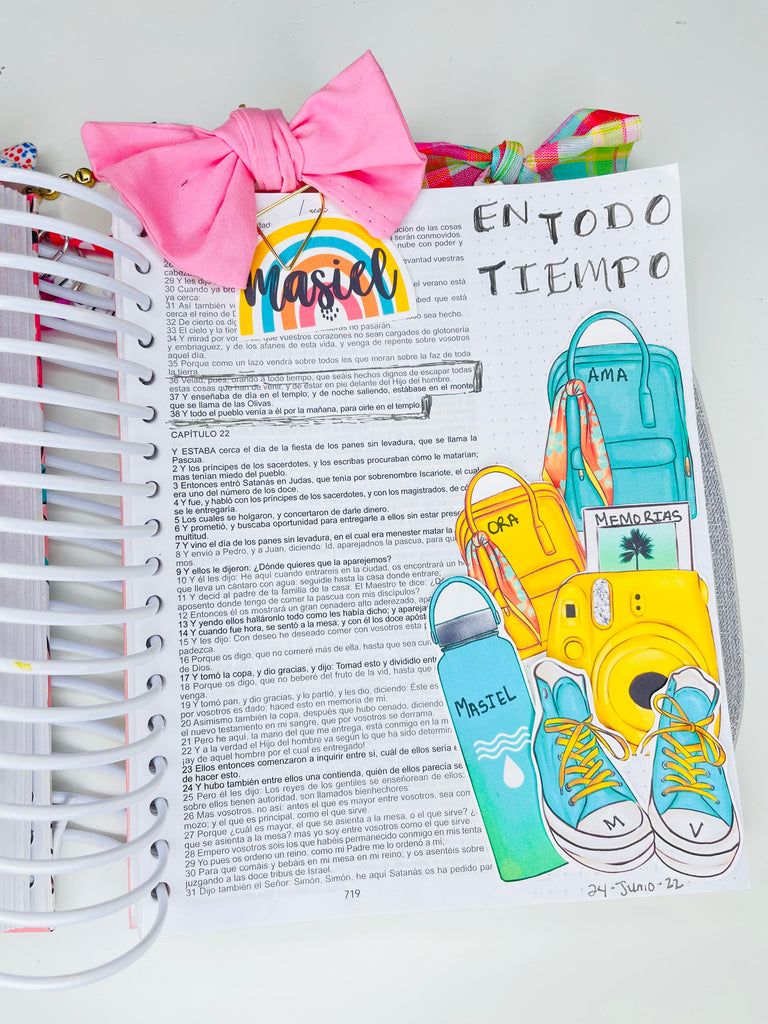 EN TODO
TIEMPO
masiel
dad
ción de las cosas
serán conmovidos.
nube con poder y
vantad vuestras
cabeza
29 Y les dijo
el verano está
30 Cuando ya bro
ya cerca:
31 Así también vo
bed que está
cerca el reino de D
32 De cierto os dig
do sea hecho.
33 El cielo y la tier
as no pasarán.
34 Y mirad por vos
que vuestros corazones no sean cargados de glotonería
y embriaguez, y de los afanes de esta vida, y venga de repente sobre vosotros
aquel día.
35 Porque como un lazo vendrá sobre todos los que moran sobre la faz de toda
la tierra.
36 Velad, pues, orando a todo tiempo, que seáis hechos dignos de escapar todas
estas cosas que han de venir, y de estar en pie delante del Hijo del hombre.
37 Y enseñaba de día en el templo; y de noche saliendo, estábase en el monte
que se llama de las Olivas.
38 Y todo el pueblo venía a él por la mañana, para oirle en el templo.
CAPÍTULO 22
Y ESTABA cerca el día de la fiesta de los panes sin levadura, que se llama la
Pascua.
2 Y los príncipes de los sacerdotes, y los escribas procuraban cómo le matarían;
mas tenían miedo del pueblo.
3 Entonces entró Satanás en Judas, que tenía por sobrenombre Iscariote, el cual
era uno del número de los doce.
4 Y fue, y habló con los príncipes de los sacerdotes, y con los magistrados, de có
se le entregaría.
5 Los cuales se holgaron, y concertaron de darle dinero.
6 Y prometió, y buscaba oportunidad para entregarle a ellos sin estar prese
multitud.
7 Y vino el día de los panes sin levadura, en el cual era menester matar la
8 Y envió a Pedro, y a Juan, diciendo: Id, aparejadnos la pascua, para que
mos.
9 Y ellos le dijeron: ¿Dónde quieres que la aparejemos?
10 Y él les dijo: He aquí cuando entrareis en la ciudad, os encontrará un h
que lleva un cántaro con agua: seguidle hasta la casa donde entrare;
11 Y decid al padre de la familia de la casa: El Maestro te dice: ¿D
aposento donde tengo de comer la pascua con mis discípulos?
12 Entonces él os mostrará un gran cenadero alto aderezado, apar
13 Y yendo ellos halláronlo todo como les había dicho; y apareja
14 Y cuando fue hora, se sentó a la mesa; y con él los doce apóst
15 Y les dijo: Con deseo he deseado comer con vosotros esta p
padezca.
16 Porque os digo, que no comeré más de ella, hasta que sea cum
de Dios.
17 Y tomó la copa, y dio gracias, y dijo: Tomad esto y divididlo entr
18 Porque os digo, que no beberé del fruto de la vid, hasta que
venga.
19 Y tomó pan, y dio gracias, y lo partió, y les dio, diciendo: Éste es
por vosotros es dado; haced esto en memoria de mí.
20 Asimismo también la copa, después que hubo cenado, diciendo
el nuevo testamento en mi sangre, que por vosotros se derrama.
21 Pero he aquí, la mano del que me entrega, está conmigo en la m
22 Y a la verdad el Hijo del hombre va según lo que ha sido determin
¡ay de aquel hombre por el cual es entregado!
23 Ellos entonces comenzaron a inquirir entre sí, cuál de ellos sería e
de hacer esto.
24 Y hubo también entre ellos una contienda, quién de ellos parecía se
25 Pero él les dijo: Los reyes de los gentiles se enseñorean de ellos;
sobre ellos tienen autoridad, son llamados bienhechores:
26 Mas vosotros, no así: antes el que es mayor entre vosotros, sea com
mozo; y el que es principal, como el que sirve.
27 Porque ¿cuál es mayor, el que se asienta a la mesa, o el que sirve? ¿
que se asienta a la mesa? mas yo soy entre vosotros como el que sirve.
28 Empero vosotros sois los que habéis permanecido conmigo en mis tenta
29 Yo pues os ordeno un reino, como mi Padre me lo ordenó a mí;
30 Para que comáis y bebáis en mi mesa en mi reino; y os asentéis sobre
juzgando a las doce tribus de Israel.
31 Dijo también el Señor: Simón, Simón, he aquí Satanás os ha pedido par
719
AMA
ORA
MEMORIAS
MASIEL
M
V
24-Junio-22